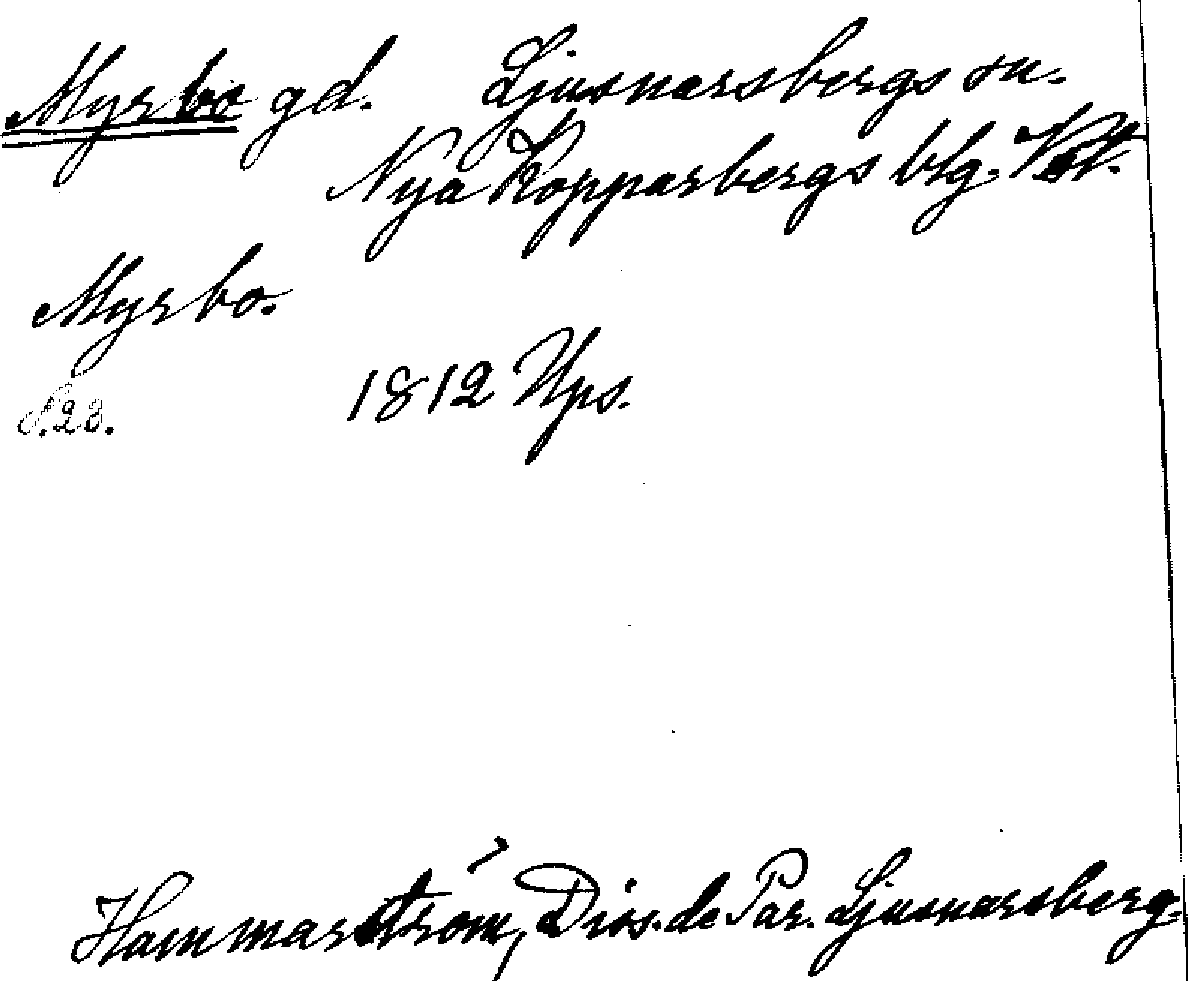 Myrbo gd. Ljusnarsbergs sn.
Nya Kopparbergs blg. Vstl.
Myrbo.
S. 23. 1812 Ups.
Hammarström, Diss. de Par. Ljusnarsberg.